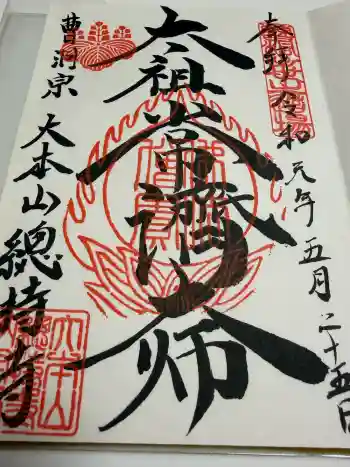 奉拝 令和元年五月二十五日
太祖常濟大師
曹洞宗 大本山總持寺